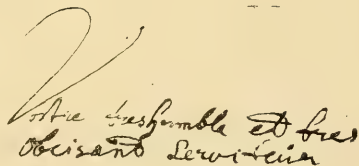 Vostre treshumble et tres
obeisant Serviteur